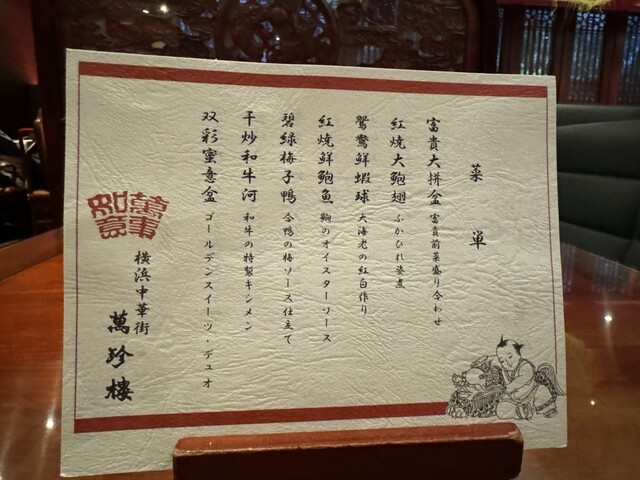 菜単
富貴大拼盒 富貴前菜盛り合わせ
紅焼大鮑翅 ふかひれ姿煮
鴛鴦鮮蝦球 大海老の紅白作り
紅焼鮮鮑魚 鮑のオイスターソース
碧緑梅子鴨 合鴨の梅ソース仕立て
干炒和牛河 和牛の特製キシメン
双彩蜜意盒 ゴールデンスイーツ・デュオ
萬事如意
横浜中華街
萬珍樓